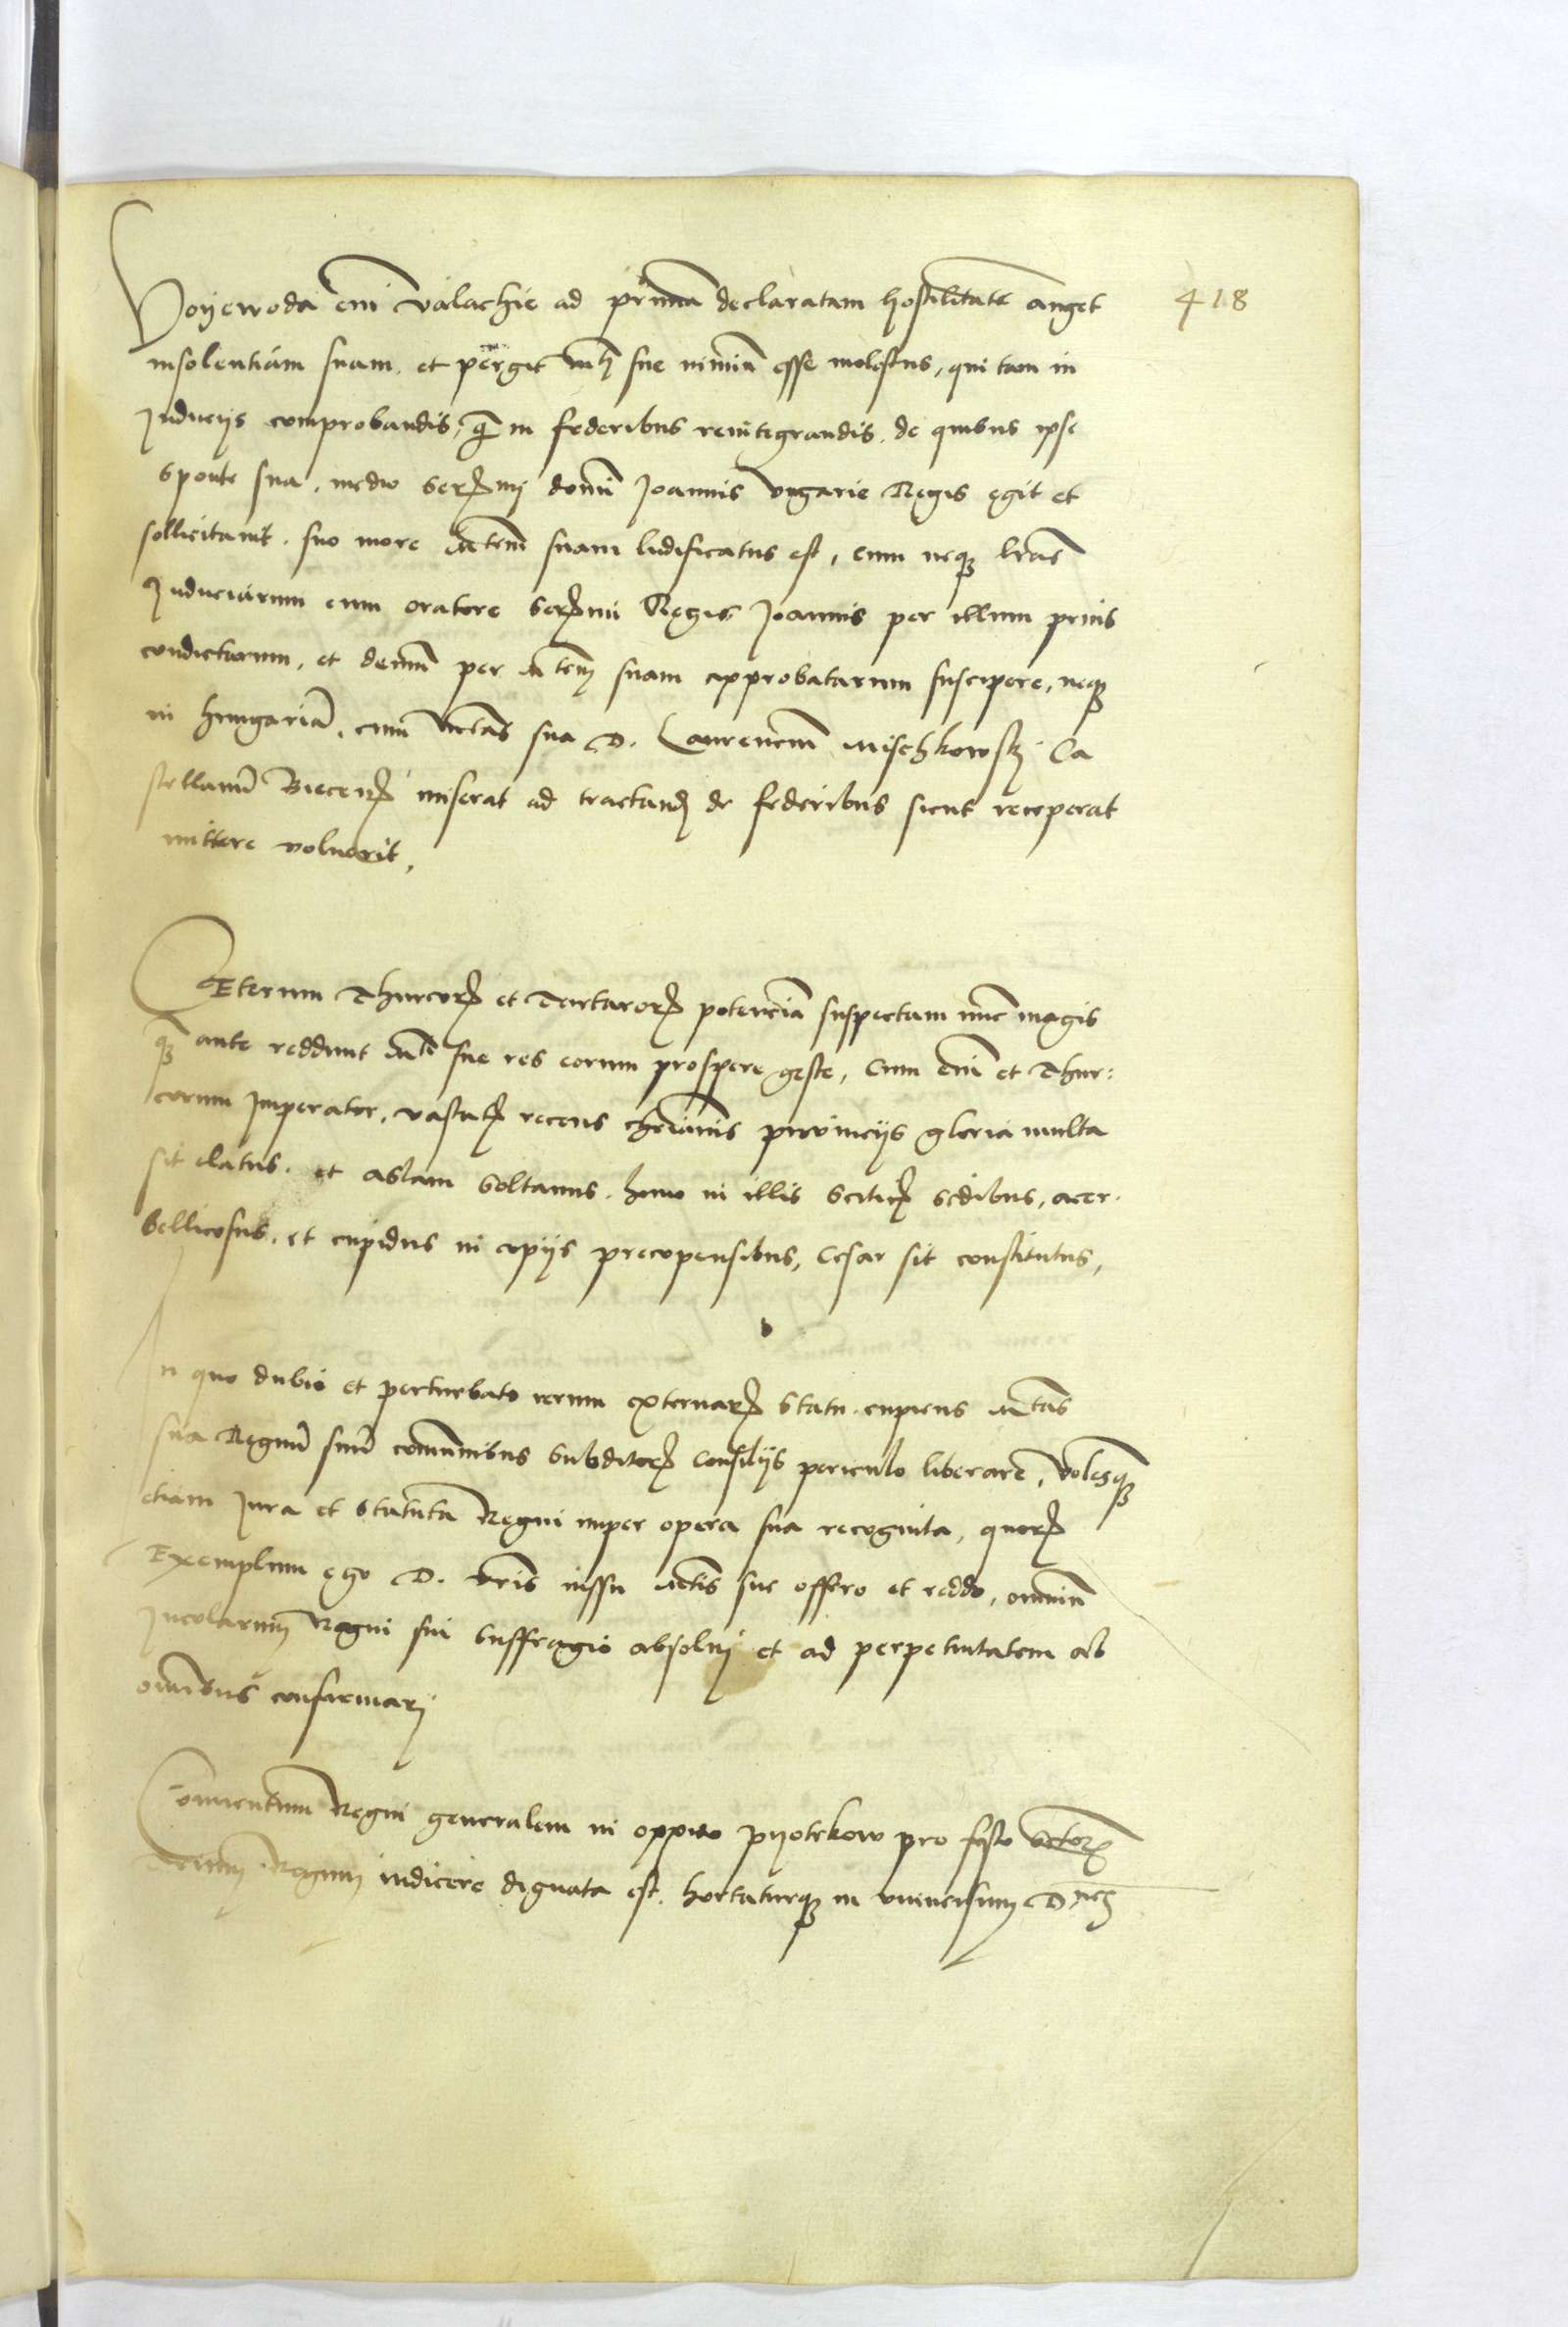 418
Voyewoda em̄ Valachie ad primā declaratam hostilitatē auget
insolentiam suam. et pergit mti sue nimiū esse molestus, qui tam in
Induciis comprobandis, q̄ in federibus reintegrandis. de quibus ipse
sponte sua, medio serēmi domī Joannis Vngarie Regis egit et
sollicitauit. suo more Mtem suam ludificatus est, cum neq3 lrās
Induciarum cum oratore serēmi Regis Joannis per illum prius
condictarum, et demū per Mtem suam approbatarum suscipere, neq3
in hungariā, cum Mtas sua D. Laurencīm Mischkowskj Ca
stellanū Biecen̄ miserat ad tractand de federibus sicut receperat
mittere voluerit,
CEterum Thurcor̄ et Tartaror̄ potenciā suspectam nūc magis
q3 ante reddunt Mti sue res eorum prospere geste, Cum em̄ et Thur:
corum Imperator, vastat̄ recens chrianis prouinciis gloria multa
sit elatus. et aslam soltanus. homo in illis scitic̄ sedibus, acer.
bellicosus. et cupidus in copiis precopensibus, Cesar sit constitutus,
In quo dubio et perturbato rerum externar̄ statu. cupiens Mtas
sua Regnū suū comunibus subditor̄ Consiliis periculo liberare, Volesq3
etiam Jura et statuta Regni nuper opera sua recognita, quor̄
Exemplum ego D. vris iussu Mtis sue offero et reddo, omniū
Incolarum Regni sui suffragio absolui et ad perpetuitatem ab
omībus confirmarj
Conuentum Regni generalem in oppido pyotrkow pro festo Sctor̄
Trium Regum indicere dignata est. hortaturq3 in vniuersum D nes